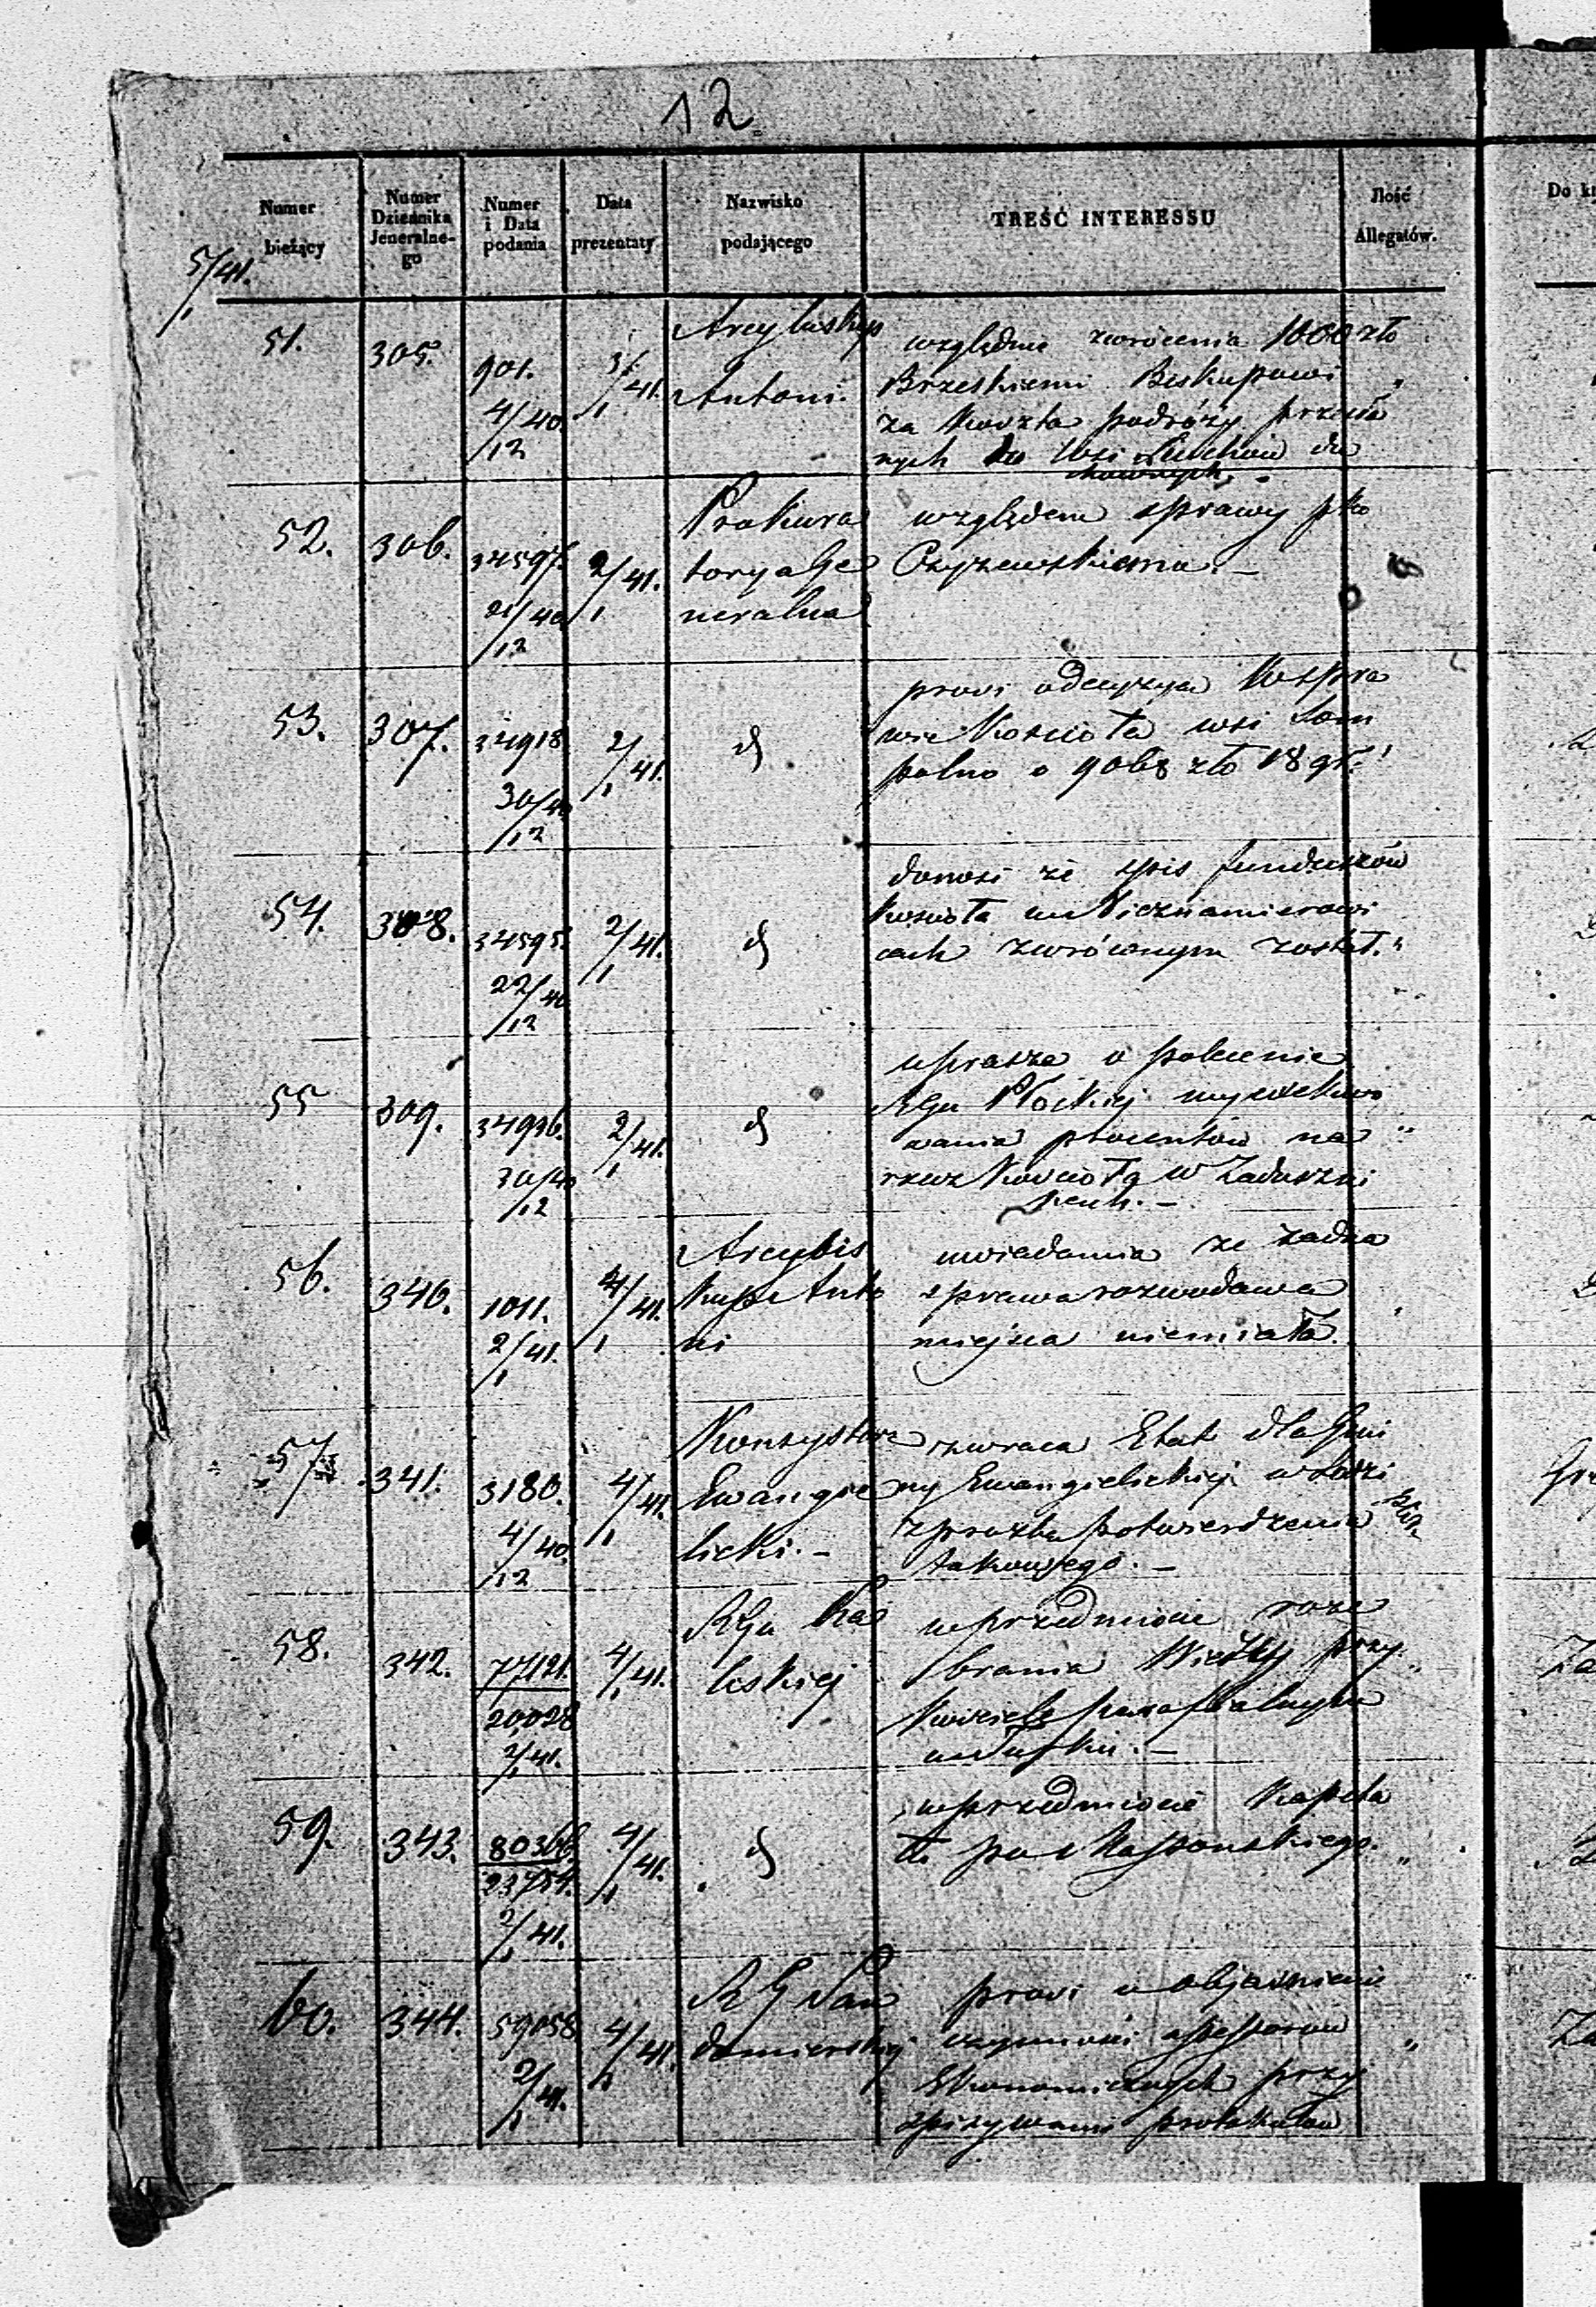 12
Numer bieżący
Numer Dziennika Jeneralne-go
Numer i Data podania
Data prezentaty
Nazwisko podającego
TREŚĆ INTERESSU
Ilość Allegatów.
Do
5/41.
1
51. 305. 901. 4/40. 12 3/41. 1
Arcybiskup
Antoni.
względnie zwrócenia 1000 zło
Brzeskiemi Biskupowi
za koszta podróży
nych
52. 306. 34597. 21/40 12 2/41. 1
Prokura
torya Ge
neralna
względem sprawy pko
Czyżewskiemu. —
53. 307. 34918 30/40 12 2/41. 1
prosi o decyzyą w spra
wie Kościoła wsi Lom
polno o 9068 zło 18 gr.
54. 308. 34595. 22/40 12 2/41. 1
donosi że spis funduszów
kościoła w Nieznamierowi
cach zwróconym został.
55 309. 34936. 30/40 12 2/41. 1
uprasza o polecenie
RGu Płockiej wyexekwo
wania procentów na
rzecz Kościoła w Zaduszni
kach. —
56. 340. 1011. 2/41. 1 4/41. 1
Arcybis
kup Anto
ni
uwiadamia że żadna
sprawa rozwodowa
miejsca niemiała.
57 341. 3180. 4/40. 12 4/41. 1
Konsystorz
Ewangie
licki. —
zwraca Etat dla Gmi
ny Ewangielickiej w Łodzi
z prozbą potwierdzenia
takowego. —
58. 342. 77121. 20,028 2/41. 1 4/41. 1
RGu Kal
liskiej
w przedmiocie roze
brania Wieży przy
kościele parafialnym
w Turku. —
59. 343. 80366. 23754. 2/41. 1 4/41. 1
w przedmiocie Kapita
łu po
60. 344. 59058 2/41. 1 4/41. 1
RG San
domierskiej
prosi o objaśnienie
czynności assessorów
Ekonomicznych przy
spisywaniu protokułów